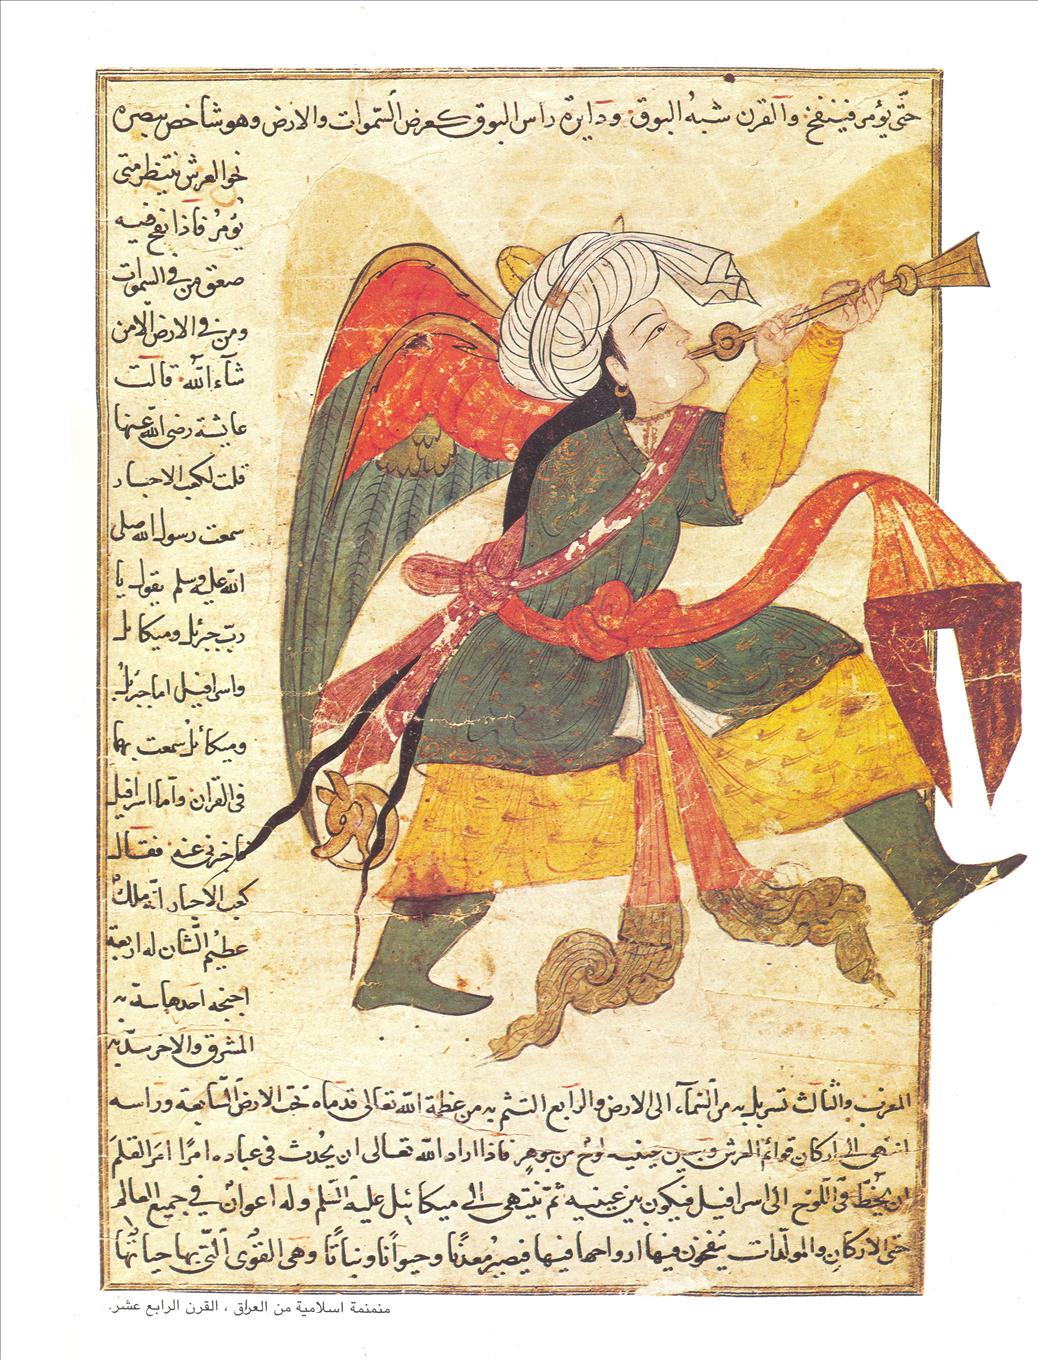 حتى يؤمر فينفخ والقرن شبه البوق ودايرة راس البوق كعرض السموات والارض وهو شاخص ببصره
نحو العرش ينتظر متى
يؤمر فاذا نفخ فيه
صعق من في السموات
ومن في الارض الا من
شآء الله قالت
عايشة رضى الله عنها
قلت لكعب الاحبار
سمعت رسول الله صلى
الله عليه وسلم يقول يا
رب جبرئل وميكائل
واسرافيل اما جبرئل
وميكائل سمعت بهما
فى القران واما اسرافيل
فاخبرنى عنه فقال
كعب الاحبار انه ملك
عظيم الشان له اربعة
اجنحه احدها سد به
المشرق والاخر سد به
المغرب والثالث تسربل به من السمآء الى الارض والرابع التثم به من عظمة الله تعالى قدماه تحت الارض السابعة وراسه
انتهى الى اركان قوائم العرش وبين عينيه لوح من جوهر فاذا اراد الله تعالى ان يحدث فى عباده امرا امر القلم
ان يخط فى اللوح الى اسرافيل فيكون بين عينيه ثم ينتهى الى ميكائيل عليه السلم وله اعوان في جميع العالم
حتى الاركان والمولدات ينفخون فيها ارواحها فيها فيصير معدنا وحيوانا ونباتا وهى القوى التى بها حياتها
منمنمة اسلامية من العراق ، القرن الرابع عشر.